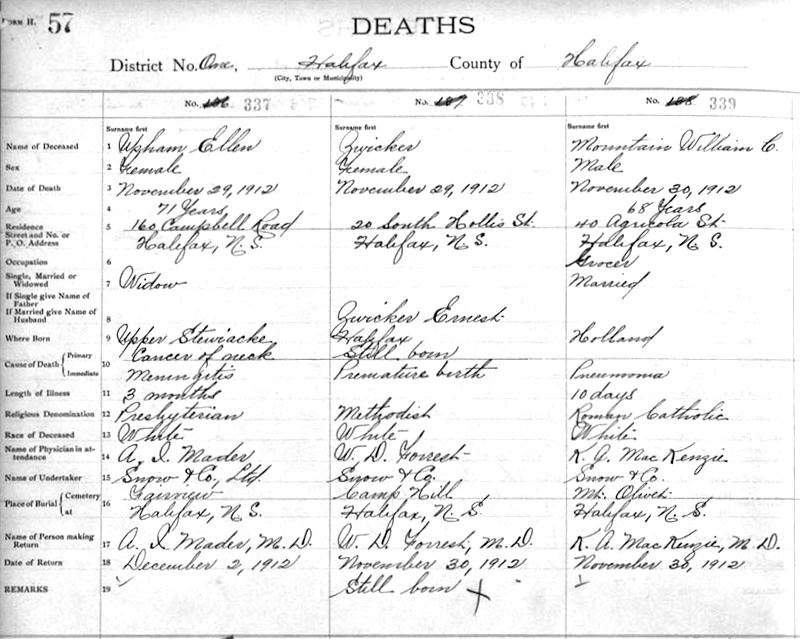 FORM H. 57
DEATHS
District No. One, Halifax County of Halifax
(City, Town or Municipality)
No. 337 No. 338 No. 339
Surname first Surname first Surname first
Name of Deceased 1 Upham Ellen Zwicker Mountain William C.
Sex 2 Female Female Male
Date of Death 3 November 29, 1912 November 29, 1912 November 30, 1912
Age 4 71 Years 68 Years
Residence Street and No. or P. O. Address 5 160 Campbell Road 20 South Hollis St. 40 Agricola St.
Halifax, N. S. Halifax, N S. Halifax, N. S.
Occupation 6 Grocer
Single, Married or Widowed 7 Widow Married
If Single give Name of Father
If Married give Name of Husband 8 Zwicker Ernest
Where Born 9 Upper Stewiacke Halifax Holland
Cause of Death 10 Primary Cancer of neck Still born
Immediate Meningitis Premature birth Pneumonia
Length of Illness 11 3 months 10 days
Religious Denomination 12 Presbyterian Methodist Roman Catholic
Race of Deceased 13 White White White
Name of Physician in attendance 14 A. I. Mader W. D. Forrest K. A. MacKenzie
Name of Undertaker 15 Snow & Co., Ltd. Snow & Co. Snow & Co.
Place of Burial 16 Cemetery Fairview Camp Hill Mt. Olivet
at Halifax, N. S. Halifax, N. S. Halifax, N. S.
Name of Person making Return 17 A. I. Mader, M. D. W. D. Forrest, M. D. K. A. MacKenzie, M. D.
Date of Return 18 December 2, 1912 November 30, 1912 November 30, 1912
REMARKS 19 Still born X